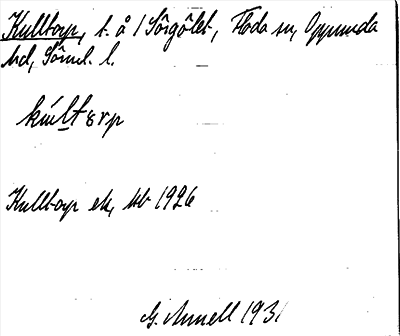 Kulltorp, t. å 1 Sörgölet, Floda sn, Oppunda
hd, Söml. l.
kúltɛrp
Kulltorp ek, kb 1926
G. Annell 1931